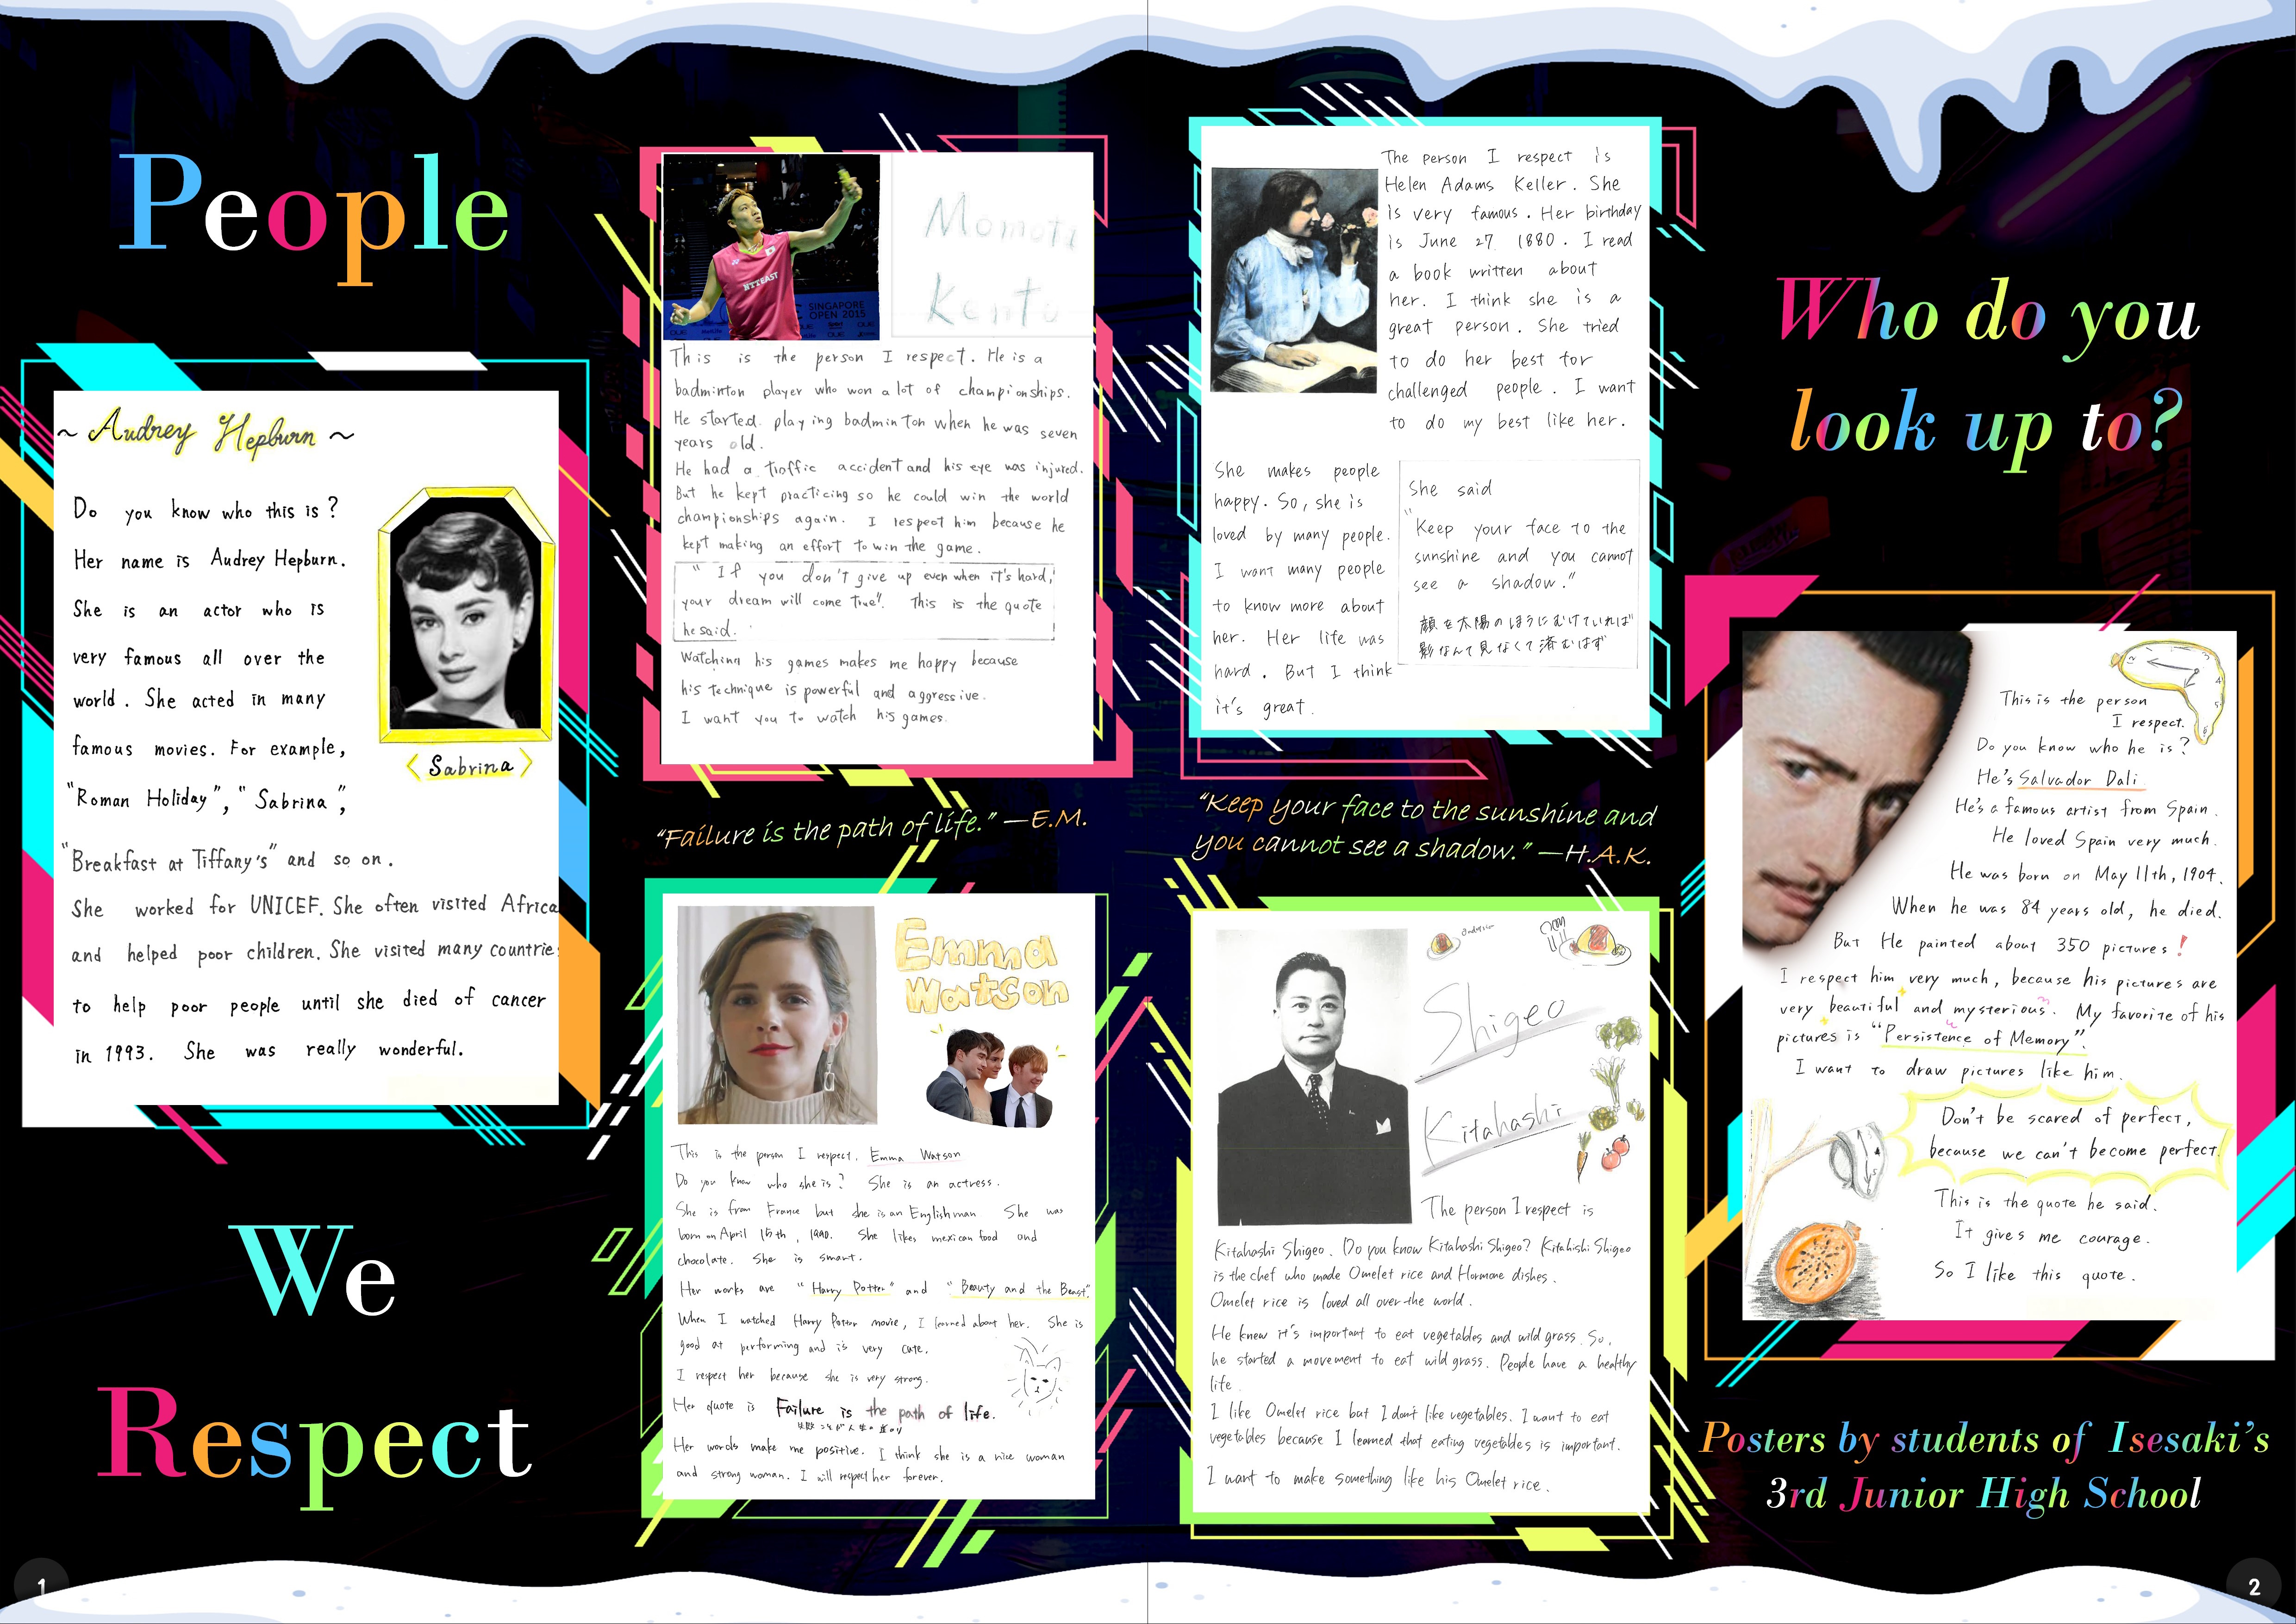 People
We
Respect
~ Audrey Hepburn ~
Do you know who this is?
Her name is Audrey Hepburn.
She is an actor who is
very famous all over the
world. She acted in many
famous movies. For example,
"Roman Holiday", "Sabrina",
"Breakfast at Tiffany's" and so on.
She worked for UNICEF. She often visited Africa
and helped poor children. She visited many countries
to help poor people until she died of cancer
in 1993. She was really wonderful.
<Sabrina>
NTT EAST
SINGAPORE
OPEN 2015
Momota
Kento
This is the person I respect. He is a
badminton player who won a lot of championships.
He started playing badminton when he was seven
years old.
He had a troffic accident and his eye was injured.
But he kept practicing so he could win the world
championships again. I respect him because he
kept making an effort to win the game.
"If you don't give up even when it's hard,
your dream will come true". This is the quote
he said.
Watching his games makes me happy because
his technique is powerful and aggressive.
I want you to watch his games.
"Failure is the path of life." —E.M.
Emma
Watson
This is the person I respect. Emma Watson
Do you know who she is? She is an actress.
She is from France but she is an Englishman She was
born on April 15th, 1990. She likes mexican food and
chocolate. She is smart.
Her works are "Harry Potter" and "Beauty and the Beast".
When I watched Harry Potter movie, I learned about her. She is
good at performing and is very cute.
I respect her because she is very strong.
Her quote is Failure is the path of life.
失敗こそが人生の道のり
Her words make me positive. I think she is a nice woman
and strong woman. I will respect her forever.
The person I respect is
Helen Adams Keller. She
is very famous. Her birthday
is June 27 1880. I read
a book written about
her. I think she is a
great person. She tried
to do her best for
challenged people. I want
to do my best like her.
She makes people
happy. So, she is
loved by many people.
I want many people
to know more about
her. Her life was
hard. But I think
it's great.
She said
"Keep your face to the
sunshine and you cannot
see a shadow."
顔を太陽のほうにむけていれば
影なんて見なくて済むはず
"Keep your face to the sunshine and
you cannot see a shadow." —H.A.K.
Shigeo
Kitahashi
The person I respect is
Kitahashi Shigeo. Do you know Kitahashi Shigeo? Kitahishi Shigeo
is the chef who made Omelet rice and Hormone dishes.
Omelet rice is loved all over the world.
He knew it's important to eat vegetables and wild grass. So,
he started a movement to eat wild grass. People have a healthy
life.
I like Omelet rice but I don't like vegetables. I want to eat
vegetables because I learned that eating vegetables is important.
I want to make something like his Omelet rice.
Who do you
look up to?
This is the person
I respect.
Do you know who he is?
He's Salvador Dali.
He's a famous artist from Spain.
He loved Spain very much.
He was born on May 11th, 1904.
When he was 84 years old, he died.
But He painted about 350 pictures!
I respect him very much, because his pictures are
very beautiful and mysterious. My favorite of his
pictures is "Persistence of Memory".
I want to draw pictures like him.
Don't be scared of perfect,
because we can't become perfect.
This is the quote he said.
It gives me courage.
So I like this quote.
Posters by students of Isesaki's
3rd Junior High School
1
2